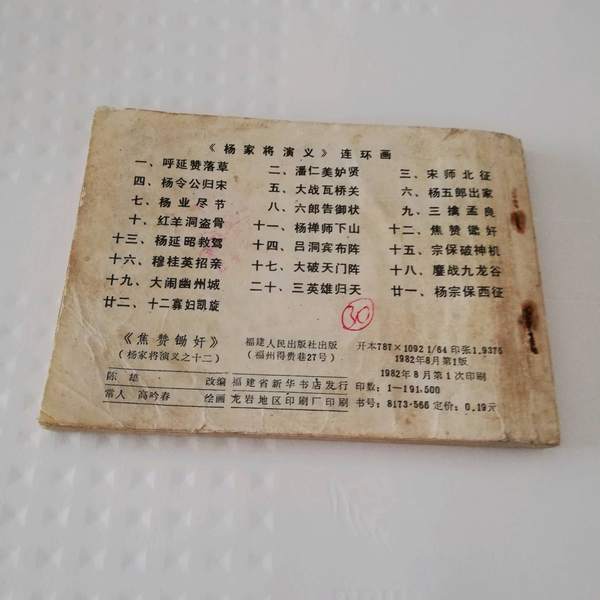 《杨家将演义》连环画
一、呼延赞落草 二、潘仁美妒贤 三、宋师北征
四、杨令公归宋 五、大战瓦桥关 六、杨五郎出家
七、杨业尽节 八、六郎告御状 九、三擒孟良
十、红羊洞盗骨 十一、杨禅师下山 十二、焦赞锄奸
十三、杨延昭救驾 十四、吕洞宾布阵 十五、宗保破神机
十六、穆桂英招亲 十七、大破天门阵 十八、鏖战九龙谷
十九、大闹幽州城 二十、三英雄归天 廿一、杨宗保西征
廿二、十二寡妇凯旋
30
《焦赞锄奸》 福建人民出版社出版 开本787×1092 1/64 印张1.9375
(杨家将演义之十二) (福州得贵巷27号) 1982年8月第1版
陈雄 改编 福建省新华书店发行 1982年8月第1次印刷
印数:1—191,500
常人 高吟春 绘画 龙岩地区印刷厂印刷 书号:8173·566 定价:0.19元